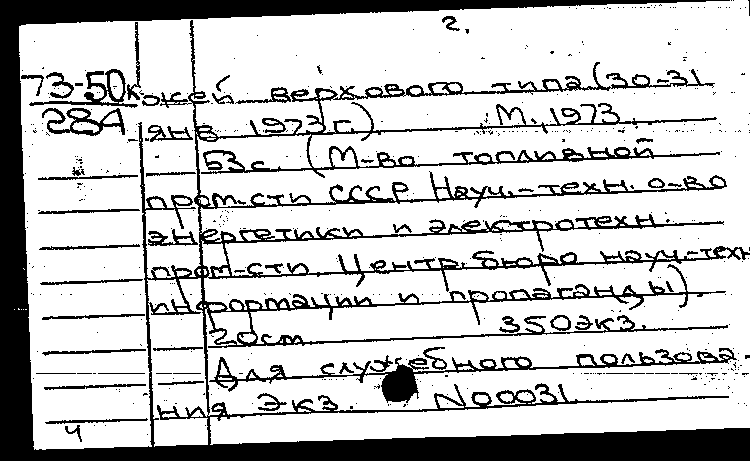 2.
73-50к жей верхового типа (30-31
284 янв 1973 г.) М., 1973.
53 с. (М-во топливной
пром-сти СССР Науч.-техн. о-во
энергетики и электротехн.
пром-сти. Центр. бюро науч.-техн
информации и пропаганды).
20 см 350 экз.
Для служебного пользова-
ния. Экз. N00031
4